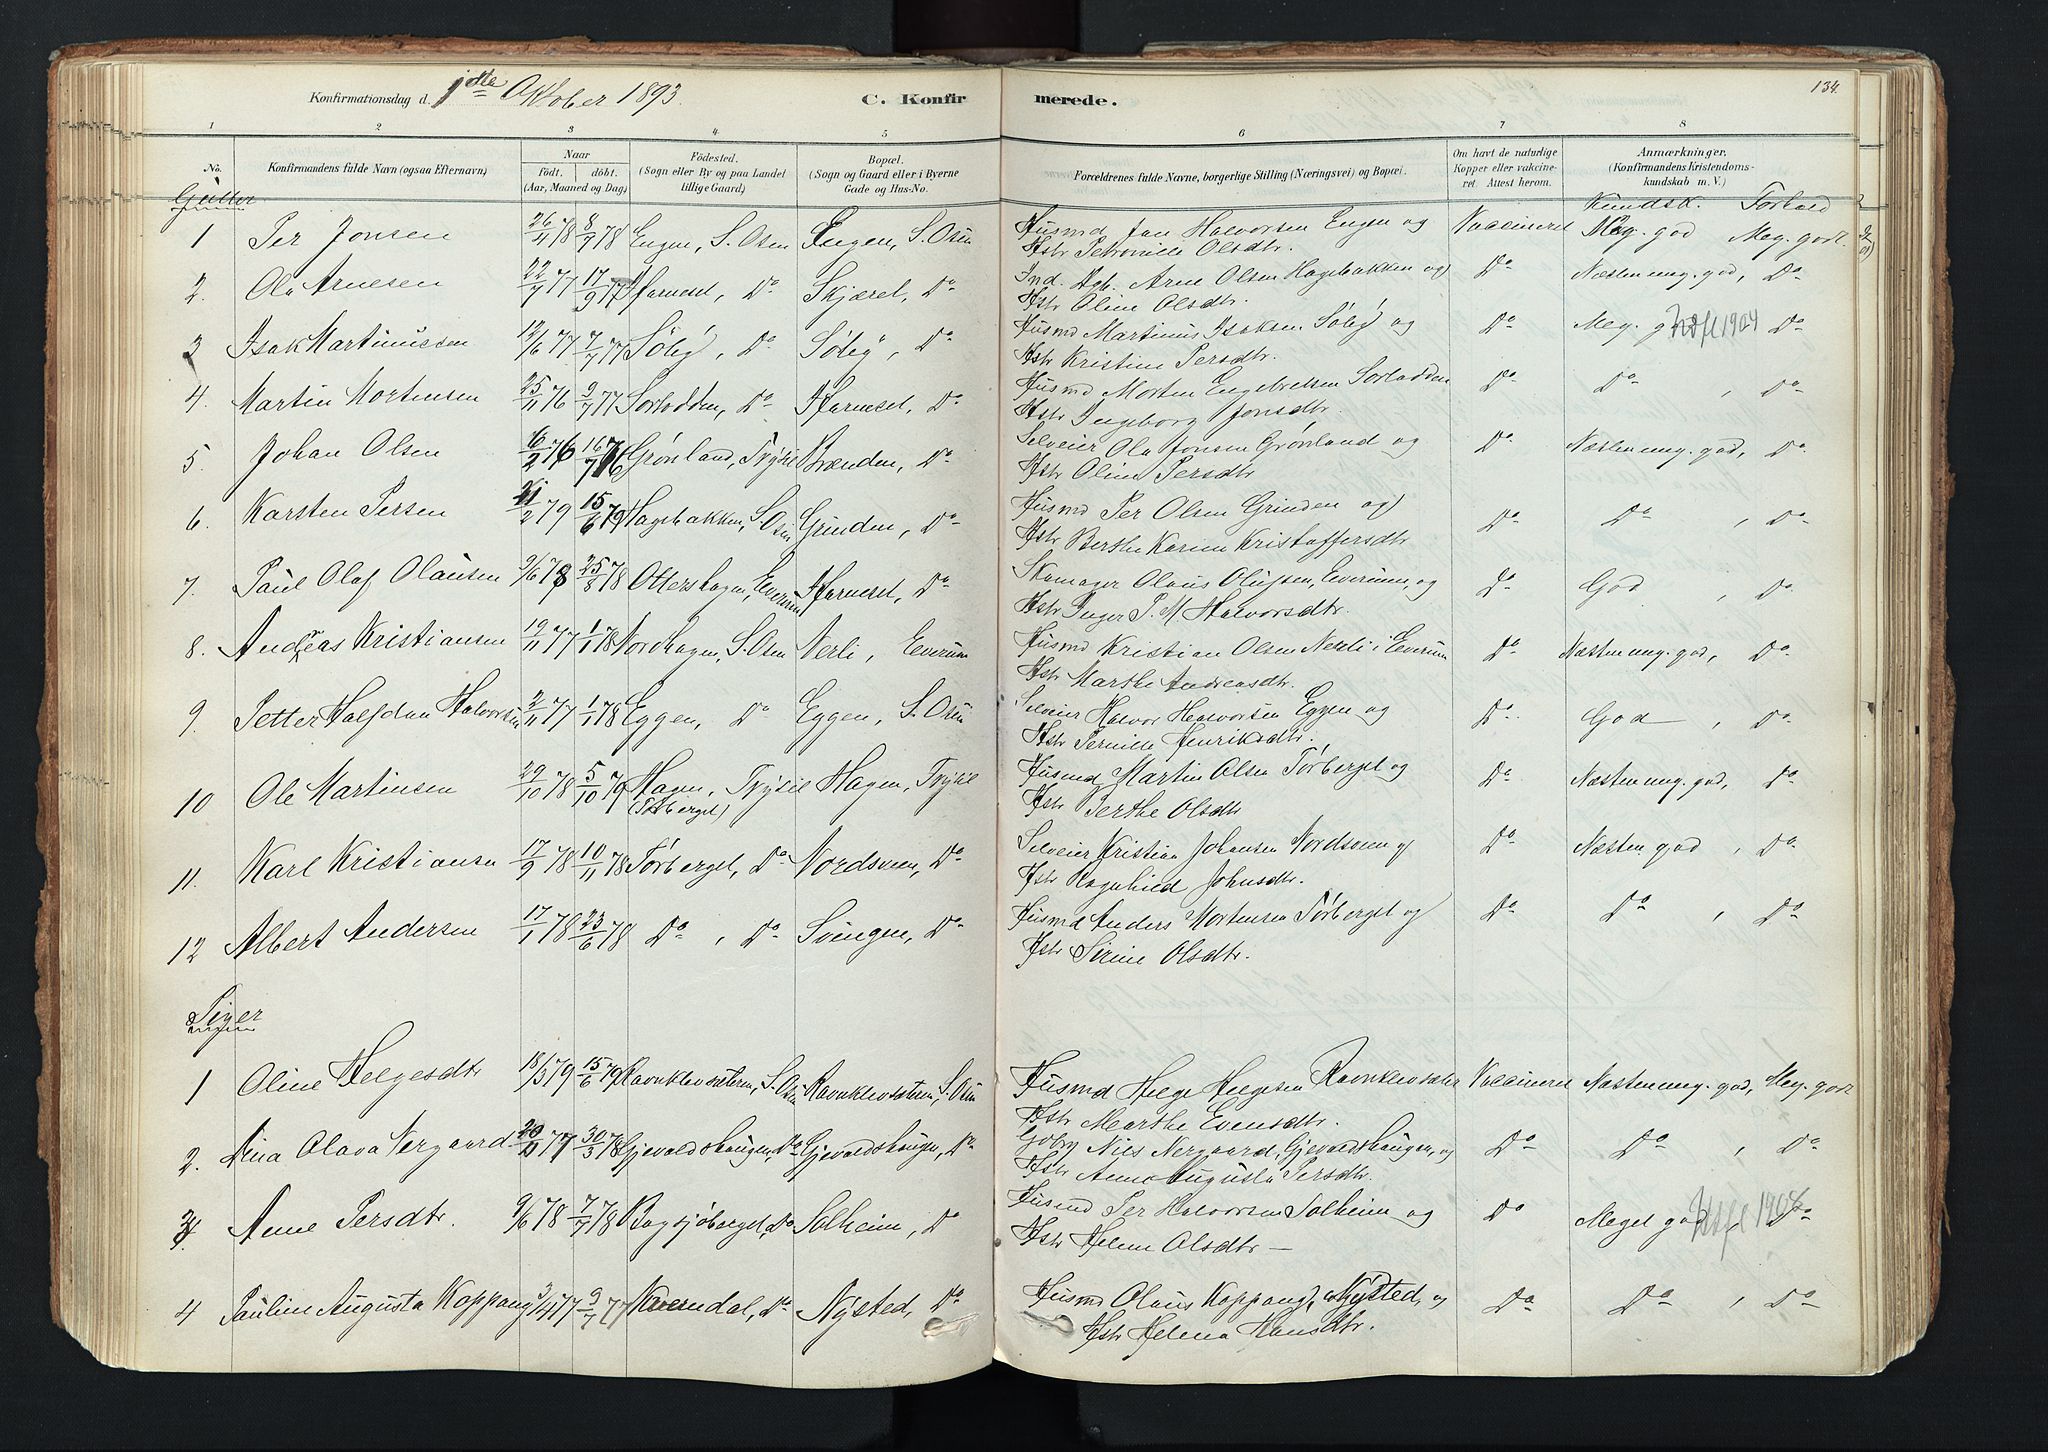 Konfirmationsdag d. 1ste Oktober 1893. C. Konfirmerede. 134.
1 2 3 4 5 6 7 8
No. Konfirmandens fulde Navn (ogsaa Efternavn) Naar født. døbt. (Aar, Maaned og Dag) Födested. (Sogn eller By og paa Landet tillige Gaard) Bopæl. (Sogn og Gaard eller i Byerne Gade og Hus-No. Forældrenes fulde Navne, borgerlige Stilling (Næringsvei) og Bopæl. Om havt de naturlige Kopper eller vakcineret. Attest herom. Anmærkninger. (Konfirmandens Kristendomskundskab m. V.)
Gutter Kundsk. Forhold
1 Per Jonsen 26/11 78 8/7 78 Engen, S. Osen Engen, S. Osen Husmd Jon Halvorsen Engen og Vaccineret Meg. god Meg. godt
Hstr Petronille Olsdtr.
2. Ola Arnesen 22/7 77 17/9 77 Harneset, Do Skjæret, Do Ind. Arne Olsen Hagebakken og Do Næsten meg. god, Do
Hstr Oline Olsdtr.
3 Isak Martinussen 12/6 77 7/7 77 Søby, Do Søby, Do Husmd Martinus Isaksen Søby og Do Meg. 1904 Do
Hstr Kristine Persdtr.
4. Martin Mortensen 25/11 76 9/7 77 Sorlodden, Do Harneset, Do Husmd Morten Engebretsen Sorlodden Do Do, Do
Hstr Ingeborg Jonsdtr.
5. Johan Olsen 16/2 76 16/7 76 Grønland, Trysil Brænden, Do Selveier Ola Jonsen Grønland og Do Næsten meg. god, Do
Hstr Oline Persdtr
6. Karsten Persen 2 79 15/6 79 Hagebakken, S. Osen Grinden, Do Husmd Per Olsen Grinden og Do Do, Do
Hstr Berthe Karine Kristoffersdtr
7. Paul Olaf Olausen 9/6 78 25/8 78 Ottershagen, Elverum Harneset, Do Skomager Olaus Olufsen, Elverum, og Do God, Do
Hstr Inger P. M. Halvorsdtr.
8. Andreas Kristiansen 19/11 77 1/1 78 Nordhagen, S. Osen Nerli, Elverum Husmd Kristian Olsen Nerli i Elverum Do Næsten meg. god, Do
Hstr Marthe Andreasdtr.
9. Petter Halfdan Halvorsen 2/11 77 1/1 78 Eggen, Do Eggen, S. Osen Selveier Halvor Halvorsen Eggen og Do God, Do
Hstr Pernille Henriksdtr.
10 Ole Martinsen 29/10 78 5/10 79 Hagen, Trysil Hagen, Trysil Husmd Martin Olsen Tørberget og Do Næsten meg. god, Do
(Tørberget) Hstr Berthe Olsdtr
11. Karl Kristiansen 17/9 78 10/11 78 Tørberget, Do Nordsveen, Do Selveier Kristian Johansen Nordsveen og Do Næsten god, Do
Hstr Ragnhild Johnsdtr.
12 Albert Andersen 17/1 78 23/6 78 Do, Do Svingen, Do Husmd Anders Mortensen Tørberget og Do Do, Do
Hstr Sirine Olsdtr.
Piger
1 Oline Helgesdtr 18/3 79 15/6 79 Ravnklevsæteren, S. Osen Ravnklevsæteren, S. Osen Husmd Helge Helgesen Ravnklevsæter Vaccineret Næsten meg. god, Meg. godt
Hstr Marthe Evensdtr.
2. Nina Olava Nergaard 20 77 30/3 78 Gjevaldshaugen, Do Gjevaldshaugen, Do Gbrg Nils Nergaard, Gjevaldshaugen, og Do Do, Do
Hstr Anne Augusta Persdtr.
3. Anne Persdtr. 9/6 78 7/7 78 Bagsjøberget, Do Solheim, Do Husmd Per Halvorsen Solheim og Do Meget god, 1908 Do
Hstr Helene Olsdtr —
4 Pauline Augusta Koppang 3/4 77 9/7 77 Kverndal, Do Nysted, Do Husmd Olaus Koppang, Nysted, og Do Do, Do
Hstr Helena Hansdtr.